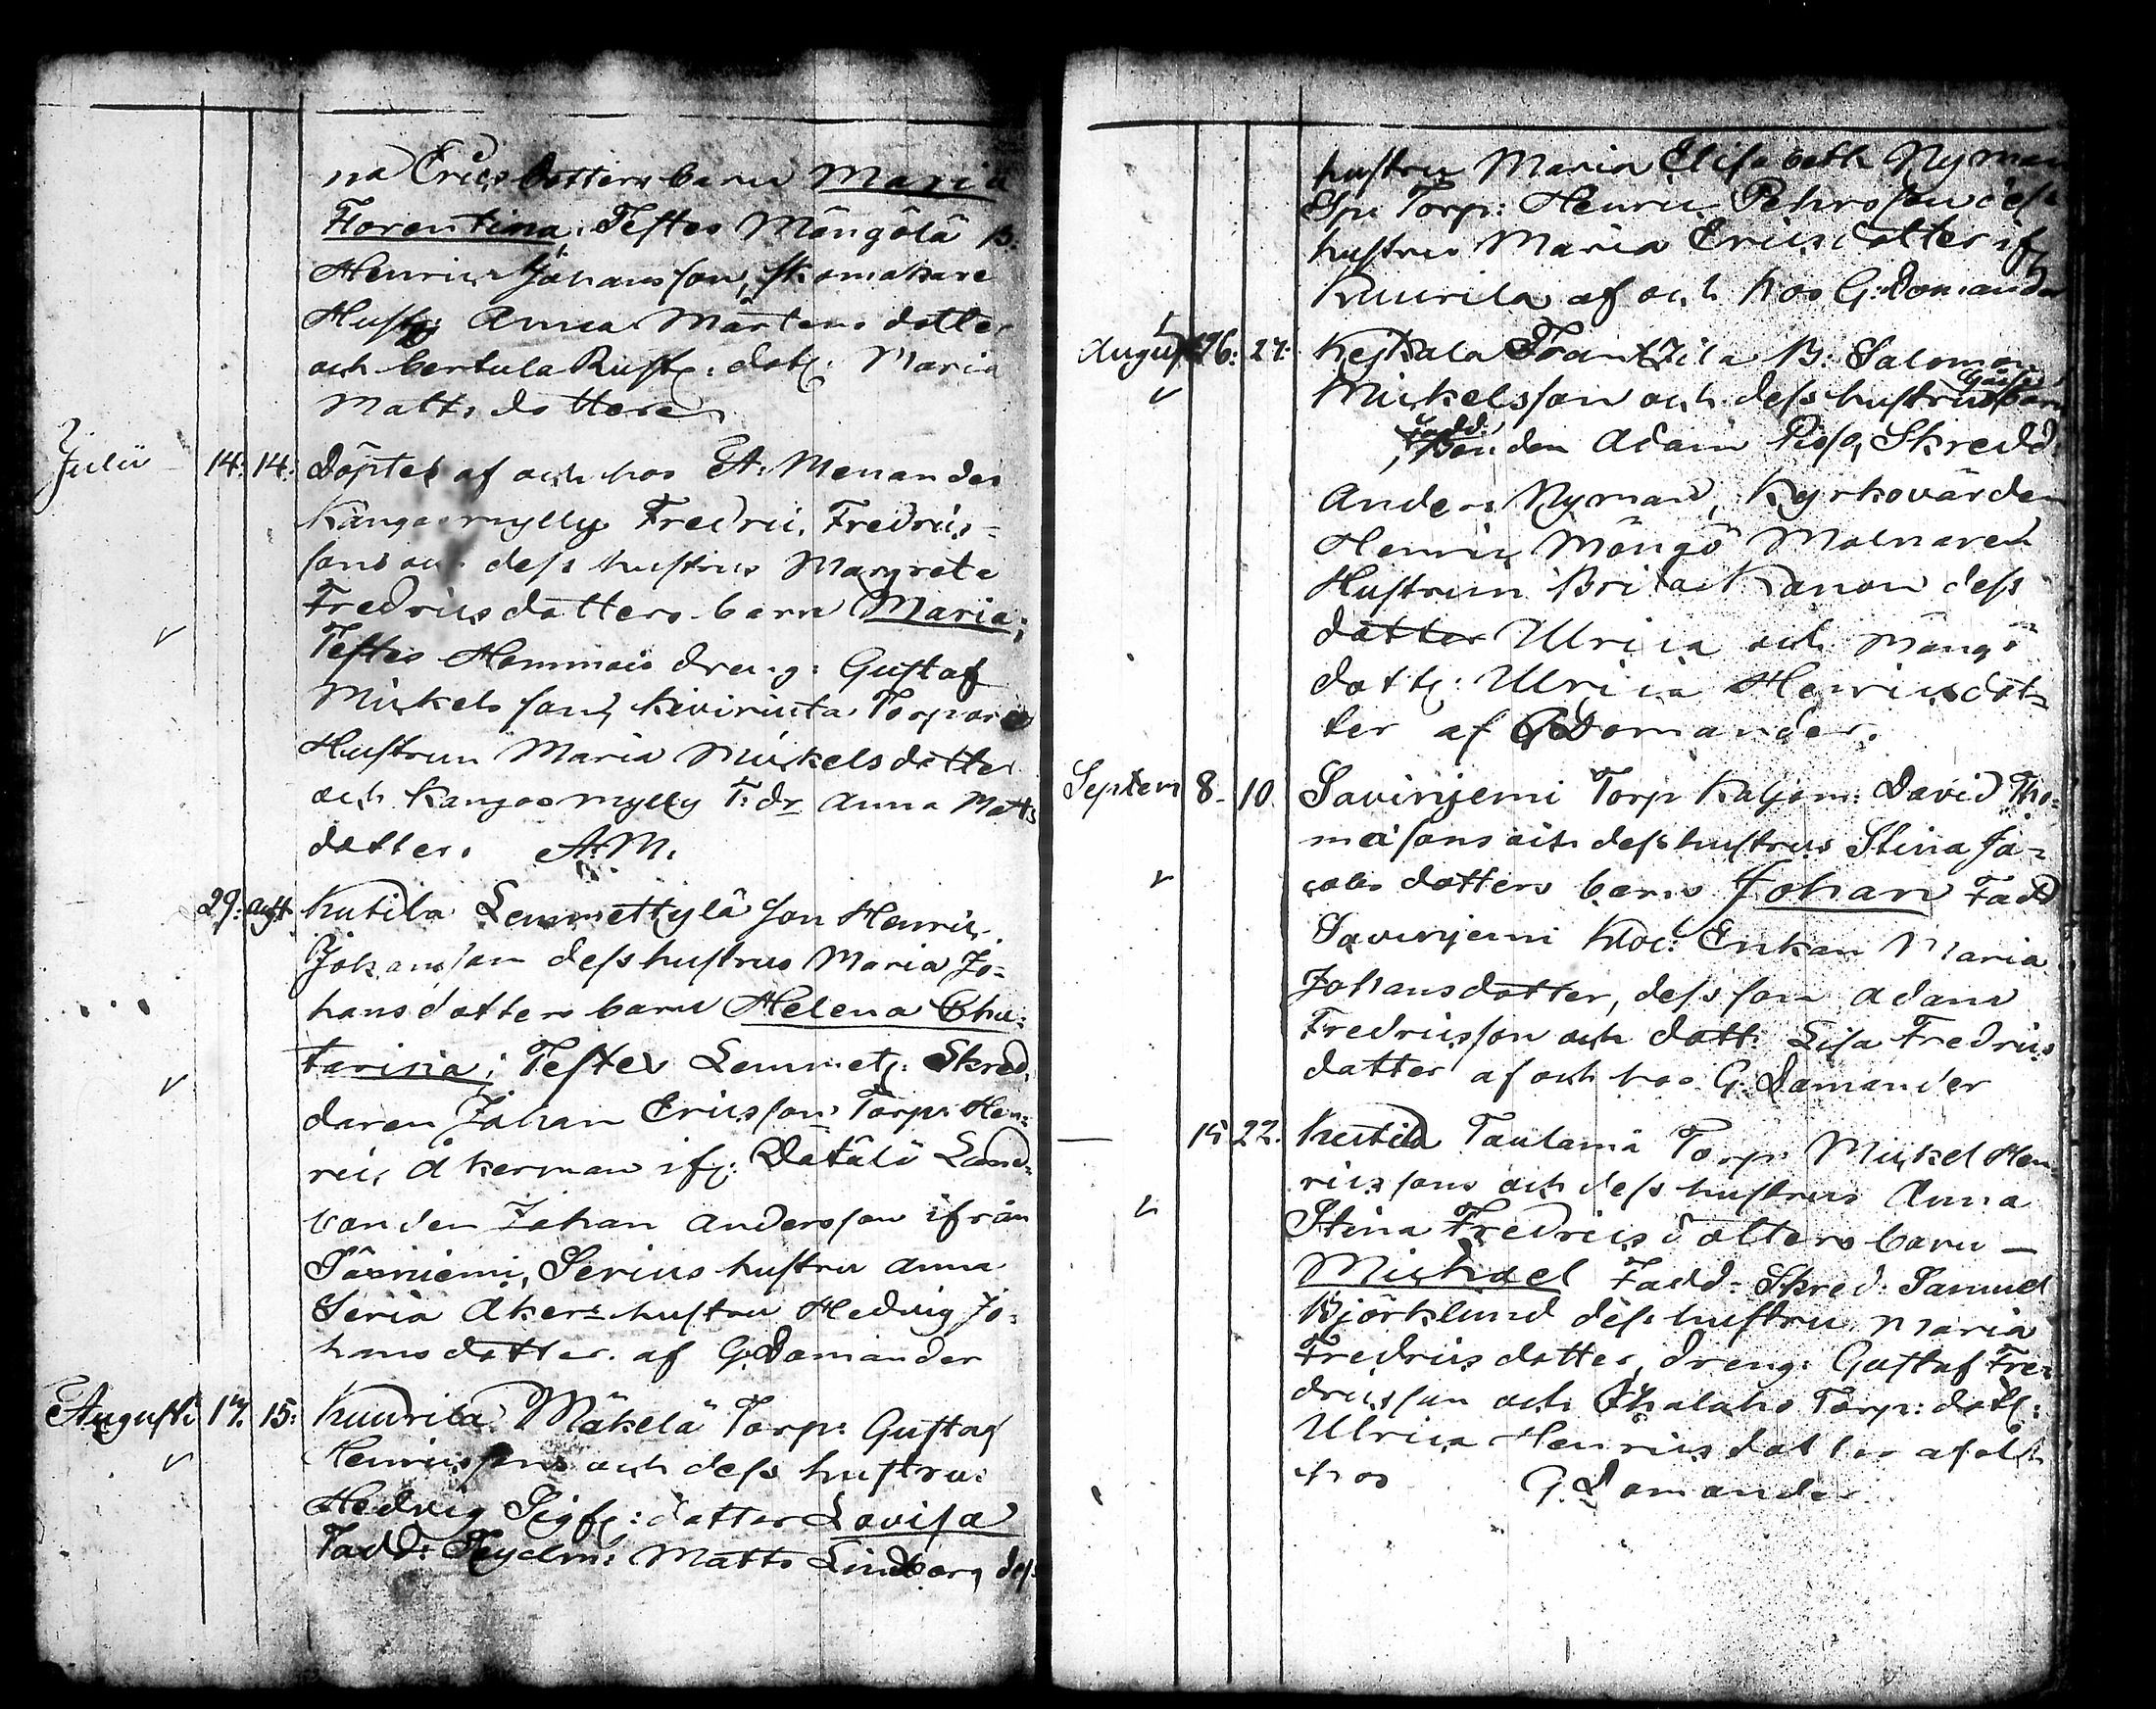 na Ericsdotters barn Maria
Florentina; Testes Mängölä B.
Henric Johansson, Skomakare
Hustr: Anna Mårtens dotter
och bertula Rust: dott: Maria
Matts dotter
Julii 14: 14: Döptes af och hos A: Menander
Kangasmylly Fredric Fredrics-
sons och dess hustrus Margreta
Fredricsdotters barn Maria;
Testes Hommais dreng: Gustaf
Mickelsson, Kivirinta Torpare
Hustrun Maria Mickelsdotter
och Kangasmylly T: dr Anna Matts
dotter. A.M.
29: aug. Kutila Lemmettylä son Henric
Johansson dess hustrus Maria Jo-
hansdotters barn Helena Cha-
tarina; Testes Lemmet: Skred-
daren Johan Ericsson Torp: Hen-
ric Åkerman if: Land-
bonden Johan Andersson ifrån
Särniemi, Serius hustru Anna
Seria Åkers hustru Hedvig Jo-
hansdotter. af G. Domander
Augusti 14. 15: Kuurila Mäkelä Torp: Gustaf
Henricssons och dess hustru:
Hedvig Sigf: dotter Lovisa
Fadd: Matts Lindborg dess
hustru Maria Elisabeth Nyman
Torp: Henric Pehrsson dess
hustru Maria Ericsdotter if
Kuurila af och hos G: Domander
August 26: 27: Keikala Frantzila B: Salomon
Mickelsson och dess hustrus barn
Fadd: Bonden Adam Skredd:
Anders Nyman, Kyrkovärden
Henric Mängö Molnaren
Hustrun Brita Kanon dess
dotter Ulrica och Mängö
dott: Ulrica Henricsdot-
ter af G Domander.
Septem 8. 10. Savinjemi Torp David Tho-
masons och dess hustrus Stina Ja-
cobs dotters barn Johan Fadd
Savinjemi Enkan Maria
Johansdotter, dess son Adam
Fredricsson och dott: Lisa Fredrics
dotter af och hos G. Domander
— 15 22. Kutila Taulamä Torp: Mickel Hen-
ricssons och dess hustrus Anna
Stina Fredricsdotters barn —
Michael Fadd: Skred: Samuel
Björklund dess hustru Maria
Fredricsdotter, dreng: Gustaf Fre-
dricsson och Torp: dott:
Ulrica Henricsdotter af och
hos G. Domander